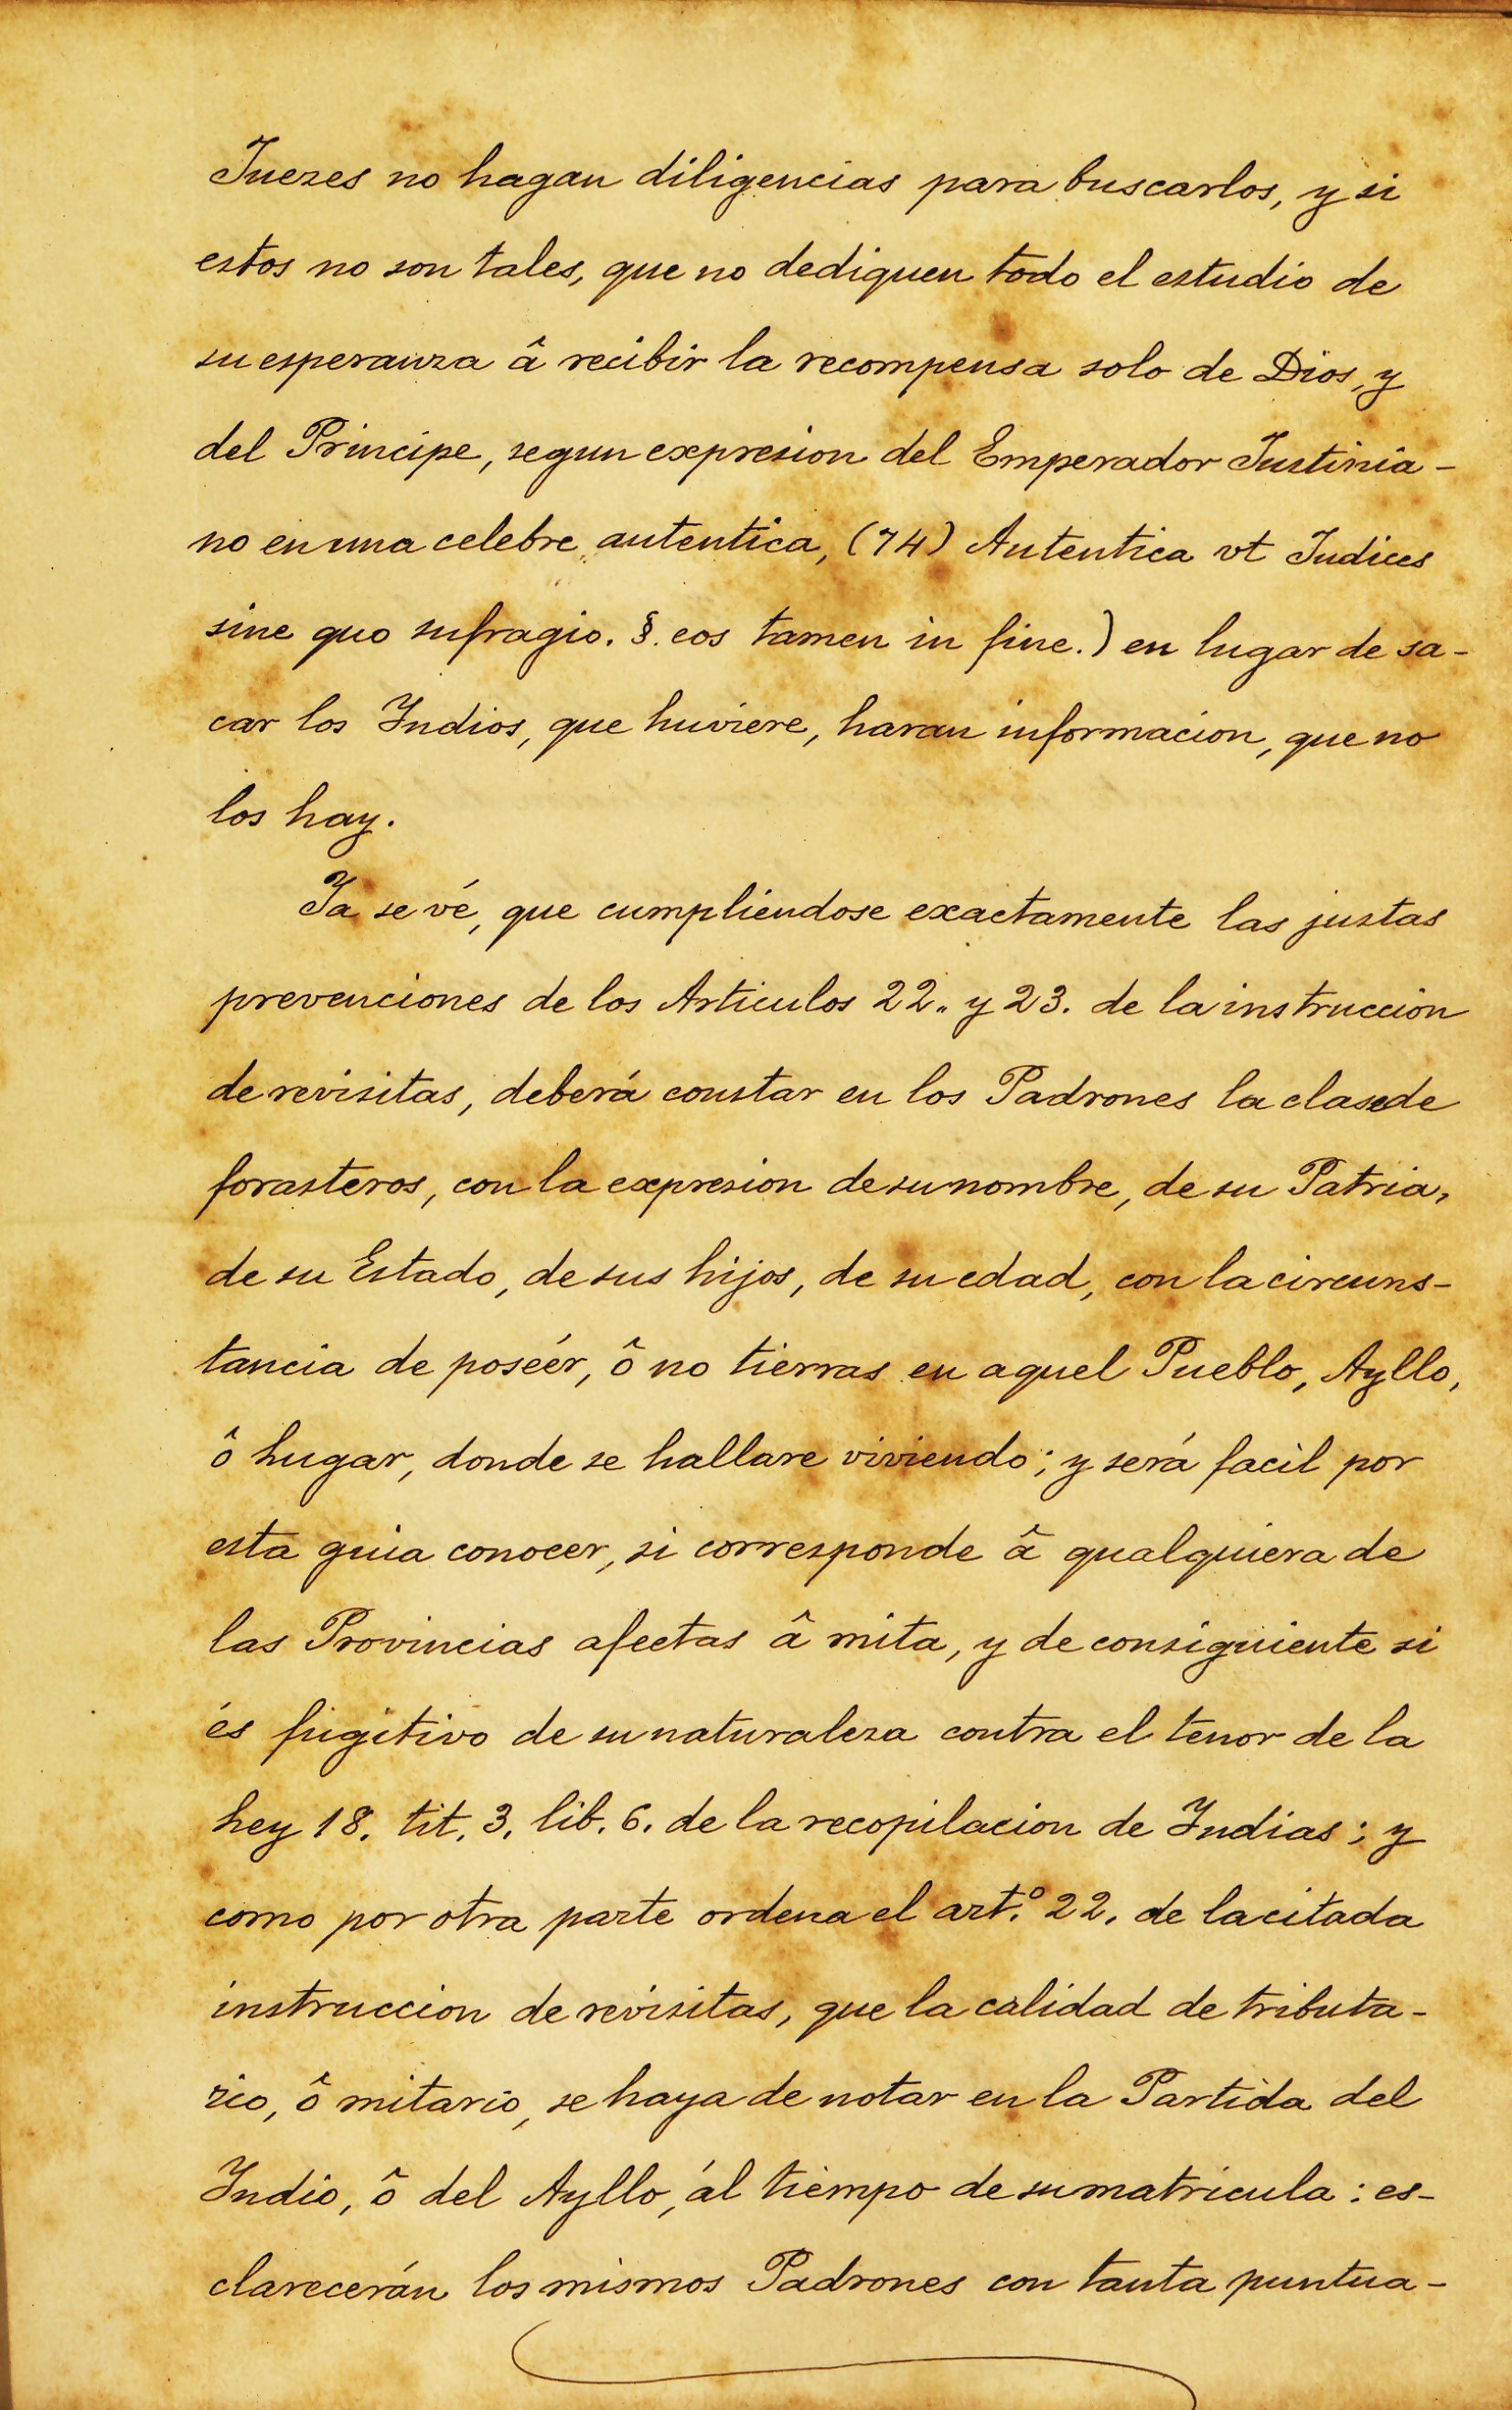 Juezes no hagan diligencias para buscarlos, y si
estos no son tales, que no dediquen todo el estudio de
su esperanza â recibir la recompensa solo de Dios, y
del Principe, segun expresion del Emperador Justinia-
no en una celebre autentica, (74) Autentica vt Judices
sine quo sufragio. §. eos tamen in fine.) en lugar de sa-
car los Indios, que huviere, haran informacion, que no
los hay.
Ya se vé, que cumpliendose exactamente las justas
prevenciones de los Articulos 22,, y 23. de la instruccion
de revisitas, deberá constar en los Padrones la clase de
forasteros, con la expresion de su nombre, de su Patria,
de su Estado, de sus hijos, de su edad, con la circuns-
tancia de poseér, ô no tierras en aquel Pueblo, Ayllo,
ô Lugar, donde se hallare viviendo; y será facil por
esta guia conocer, si corresponde â qualquiera de
las Provincias afectas â mita, y de consiguiente si
és fugitivo de su naturaleza contra el tenor de la
Ley 18. tit. 3. lib. 6. de la recopilacion de Indias; y
como por otra parte ordena el art.º 22. de la citada
instruccion de revisitas, que la calidad de tributa-
rio, ô mitario, se haya de notar en la Partida del
Indio, ô del Ayllo, ál tiempo de su matricula: es-
clarecerán los mismos Padrones con tanta puntua-